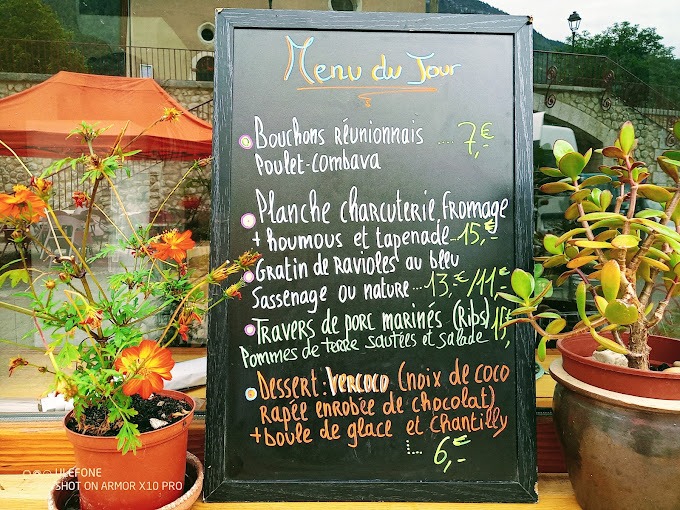 Menu du Jour
Bouchons réunionnais 7,€
Poulet-Combava
Planche charcuterie, fromage
+ houmous et tapenade...15,€
Gratin de Ravioles au bleu
Sassenage ou nature ....13,€/11,€
Travers de porc marinés (Ribs)
Pommes de terre sautées et salade
Dessert: Vercoco (noix de coco
rapée enrobée de chocolat)
+ boule de glace et chantilly
6,€
ULEFONE
SHOT ON ARMOR X10 PRO